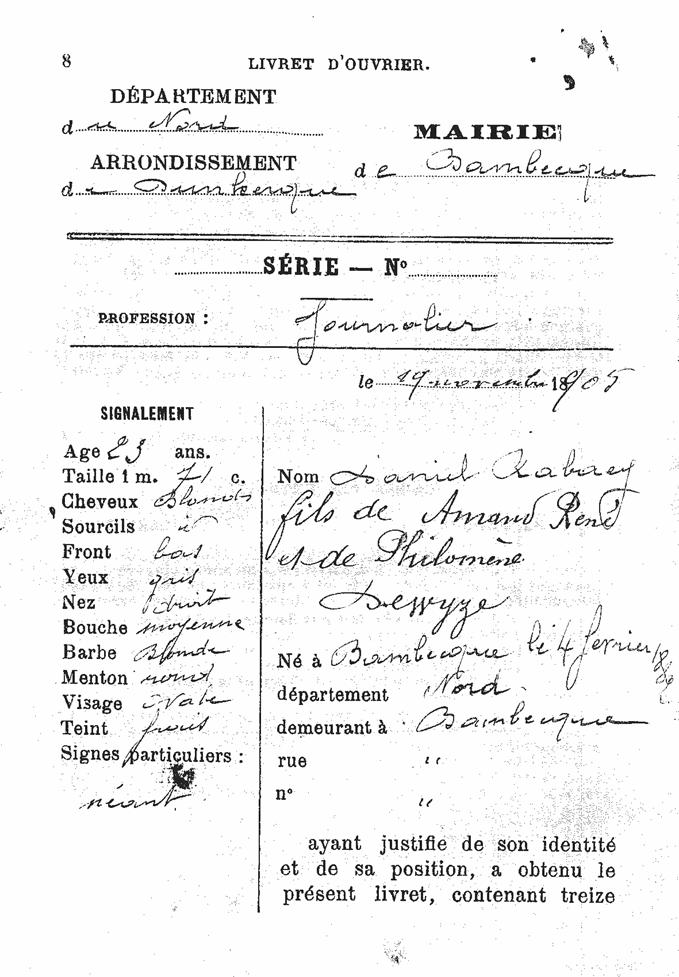 8
LIVRET D'OUVRIER.
DÉPARTEMENT
du Nord
MAIRIE
ARRONDISSEMENT
de Dunkerque
de Bambecque
SÉRIE — Nº
PROFESSION : Journalier
le 19 novembre 1905
SIGNALEMENT
Age 23 ans.
Taille 1 m. 71 c.
Cheveux Blonds
Sourcils id
Front bas
Yeux gris
Nez droit
Bouche moyenne
Barbe Blonde
Menton rond
Visage Ovale
Teint frais
Signes particuliers :
néant
Nom Daniel Rabaey
fils de Amand René
et de Philomène
Dewyze
Né à Bambecque le 4 février 1882
département Nord
demeurant à Bambecque
rue "
nº "
ayant justifie de son identité
et de sa position, a obtenu le
présent livret, contenant treize